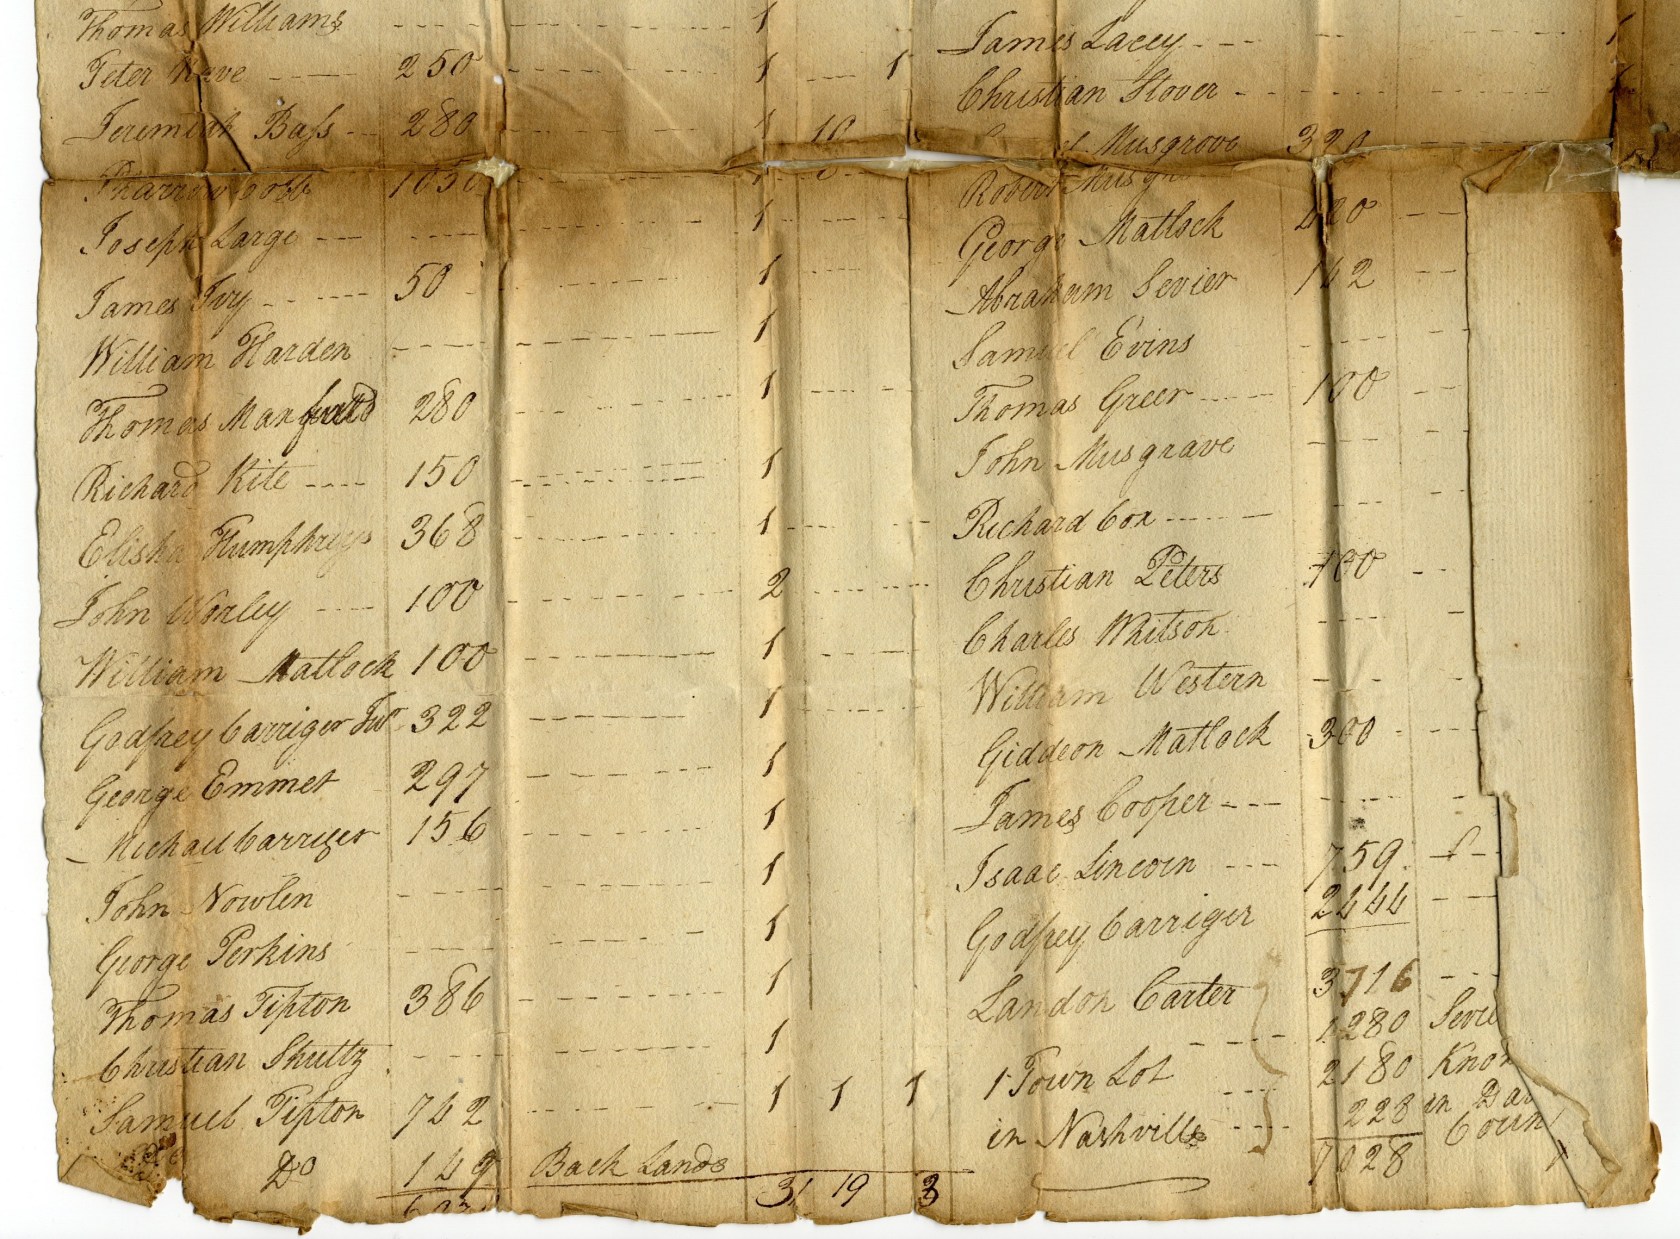 Thomas Williams 1
Peter Nave 250 1 1
Jeremiah Bass 280 1 10
Pharraoh Cobb 1050 1 6
Joseph Large 1
James Ivy 50 1
William Harden 1
Thomas Man 280 1
Richard Kite 150 1
Elisha Humphreys 368 1
John Worley 100 2
William Matlock 100 1
Godfrey Carriger Jur 322 1
George Emmet 297 1
Michael Carriger 156 1
John Nowlen 1
George Perkins 1
Thomas Tipton 386 1
Christian Shultz 1
Samuel Tipton 742 1 1 1
Do 149 Back Lands
31 19 3
James Lacey 1
Christian Stover
Musgrove 320
Robert
George Matlock 420
Abraham Sevier 142
Samuel Evins
Thomas Greer 100
John Musgrave
Richard Cox
Christian Peters 100
Charles Whitson
William Western
Giddeon Matlock 300
James Cooper
Isaac Lincoln 759
Godfrey Carriger 2444
Landon Carter 3716
1280 Sevie
1 Town Lot 2180 Knox
in Nashville 228 in Dav
Coun
7028 1